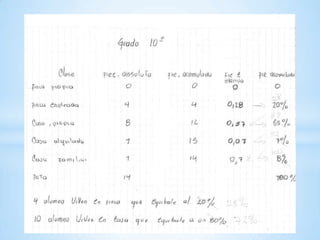 Grado 10º
Clase frec. absoluta fre. acumulada fre. relativa fre acumulada
finca propia 0 0 0 0
finca 4 4 0,28 20%
Casa propia 8 12 65%
Casa alquilada 1 13 0,07 7%
Casa familiar 1 14 8%
14 100%
4 alumnos Viven en finca que equivale al 20%
10 alumnos Viven en Casa que equivale a un 80%